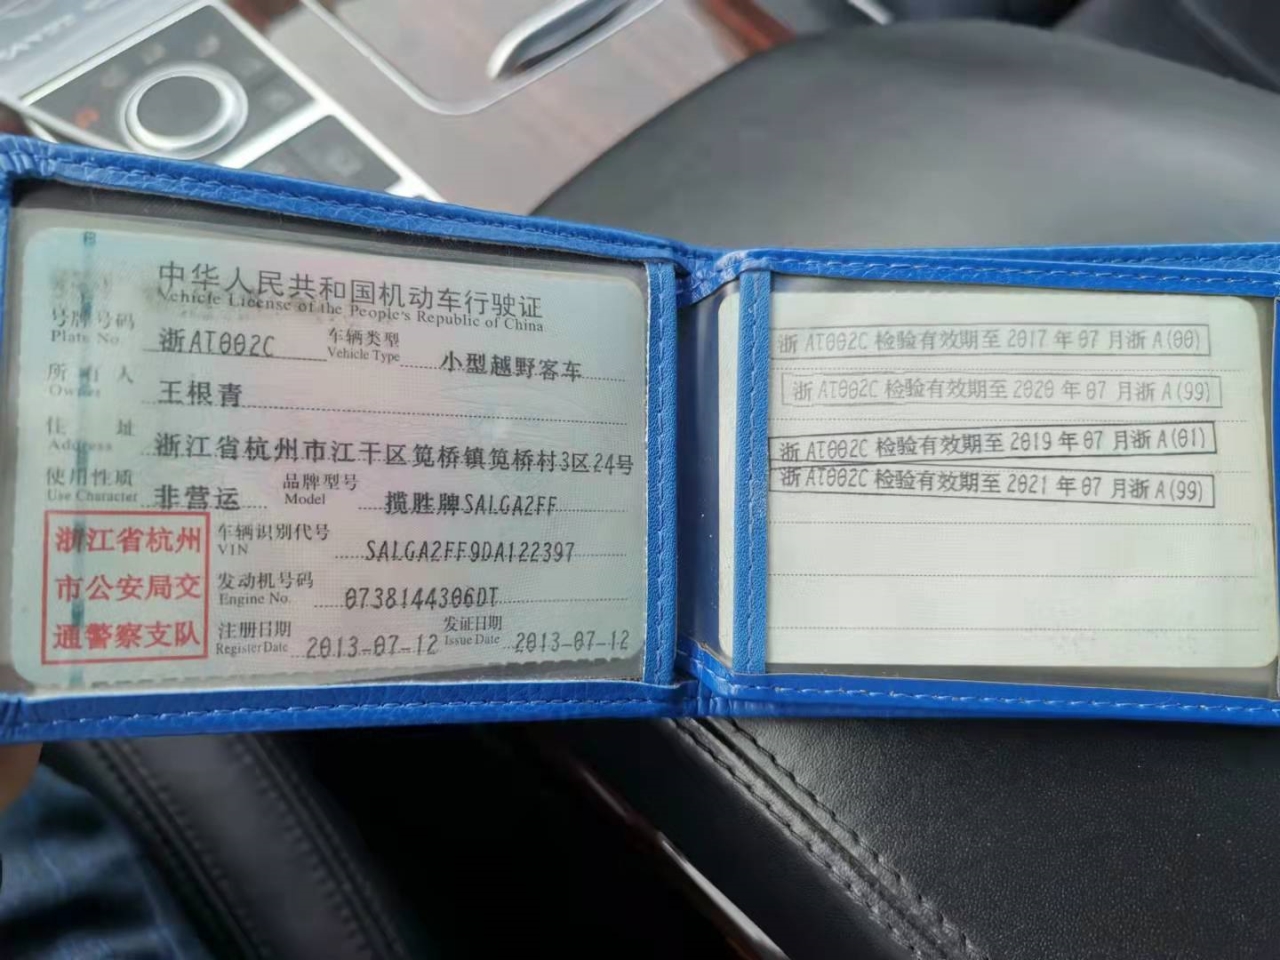 中华人民共和国机动车行驶证
Vehicle License of the People's Republic of China
号牌号码 浙AT002C 车辆类型 小型越野客车
Plate No. Vehicle Type
所有人 王根青
Owner
住址 浙江省杭州市江干区笕桥镇笕桥村3区24号
Address
使用性质 非营运 品牌型号 揽胜牌SALGA2FF
Use Character Model
浙江省杭州
市公安局交
通警察支队
车辆识别代号 SALGA2FF9DA122397
VIN
发动机号码 0738144306DT
Engine No.
注册日期 2013-07-12 发证日期 2013-07-12
Register Date Issue Date
浙 AT002C 检验有效期至 2017 年 07 月浙 A(00)
浙 AT002C 检验有效期至 2020 年 07 月浙 A(99)
浙 AT002C 检验有效期至 2019 年 07 月浙 A(01)
浙 AT002C 检验有效期至 2021 年 07 月浙 A(99)